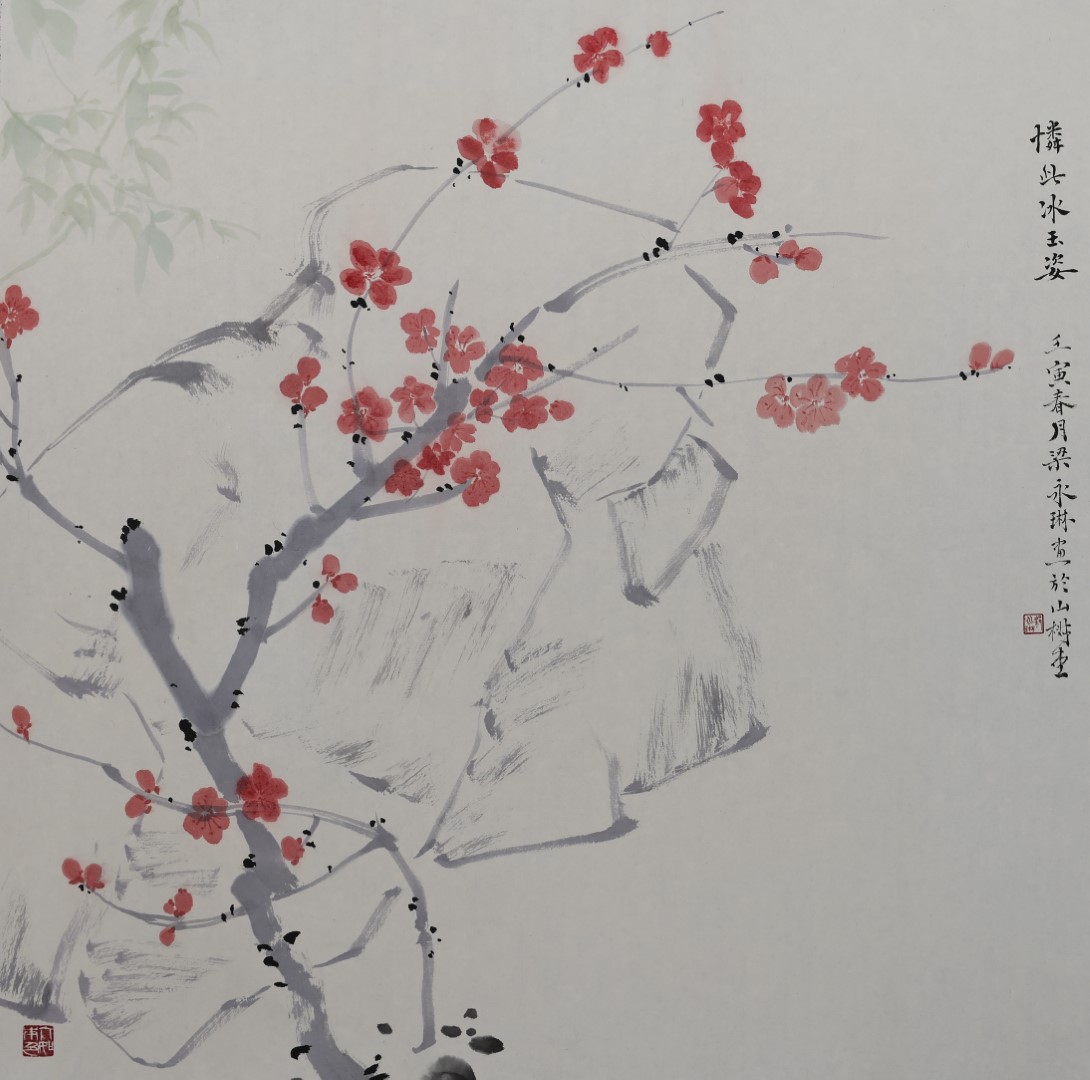 憐此冰玉姿 壬寅春月梁永琳畫於山樹堂